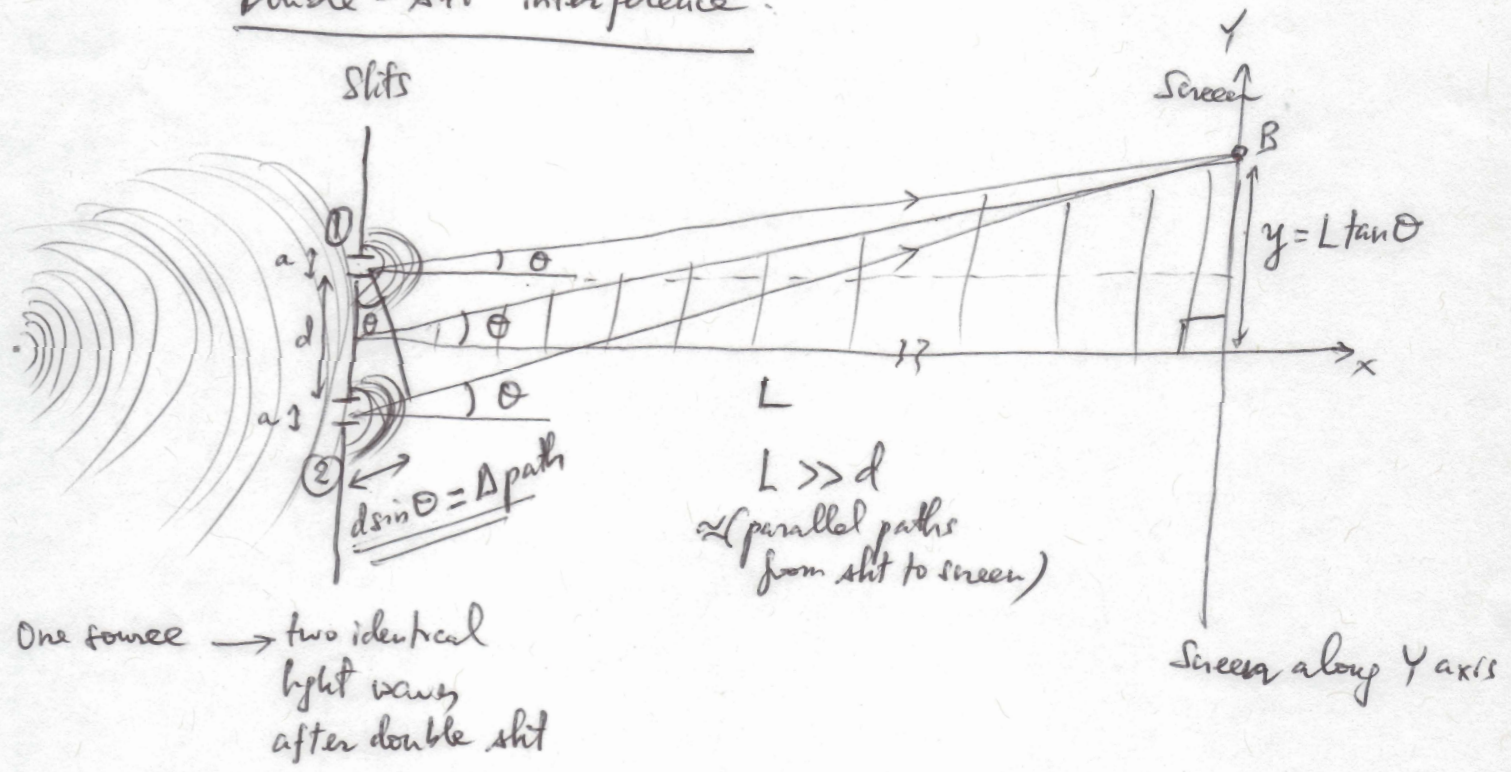 Double-slit interference.
Slits
Y
Screen
B
①
a
θ
y = L tanθ
d
θ
θ
x
a
θ
L
②
d sinθ = Δ path
L >> d
≈ (parallel paths
from slit to screen)
One source → two identical
light waves
after double slit
Screen along Y axis